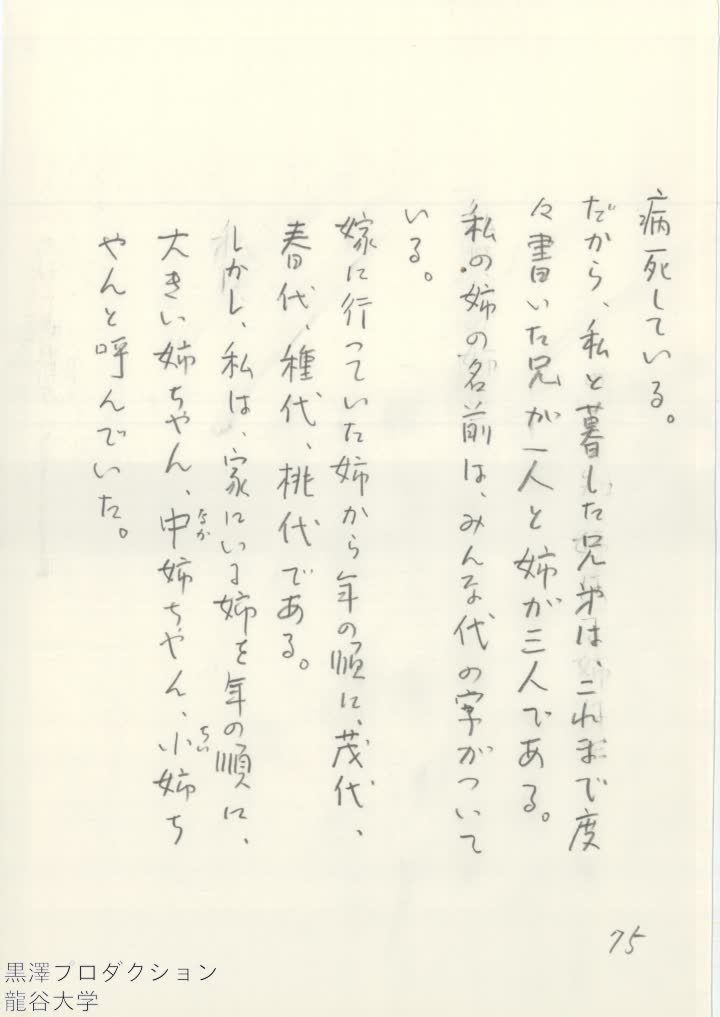 病死している。
だから、私と暮した兄弟は、これまで度
々書いた兄が一人と姉が三人である。
私の姉の名前は、みんな代の字がついて
いる。
嫁に行っていた姉から年の順に、茂代、
春代、種代、桃代である。
しかし、私は、家にいる姉を年の順に、
大きい姉ちゃん、中姉ちゃん、小姉ち
なか
ちい
ゃんと呼んでいた。
75
黒澤プロダクション
龍谷大学